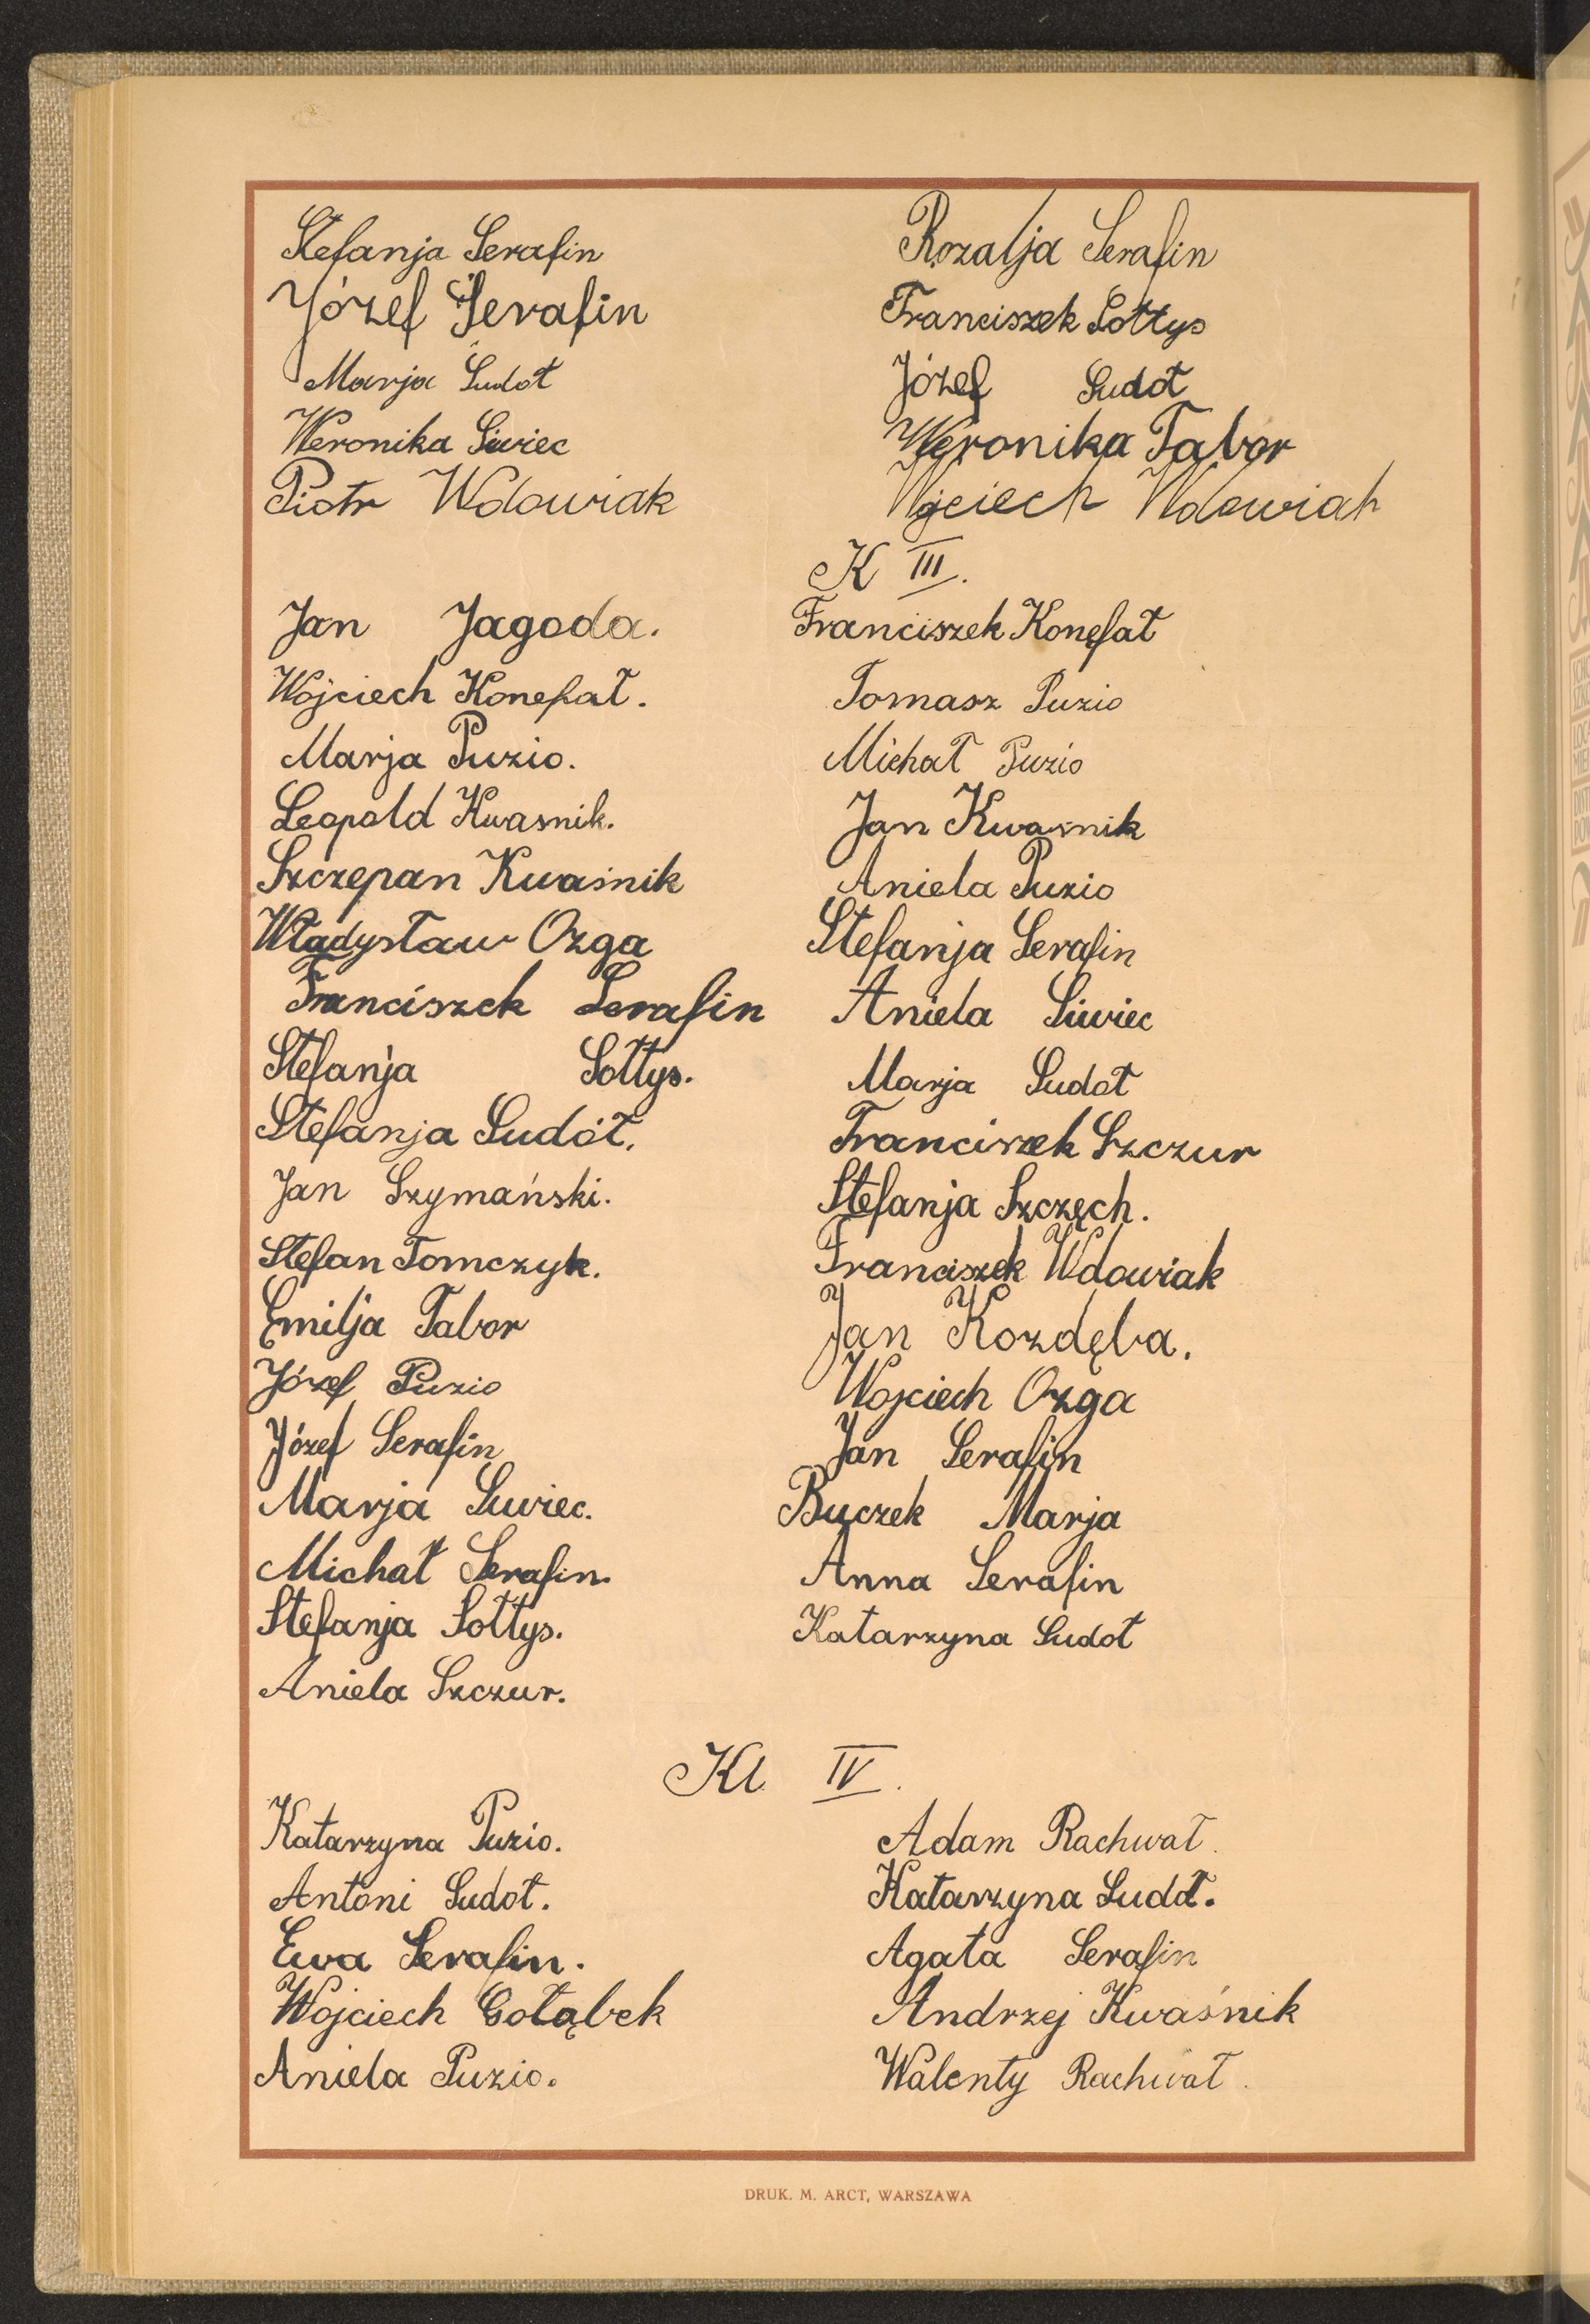 Stefanja Serafin
Józef Serafin
Marja Sudoł
Weronika Siwiec
Piotr Wdowiak
Rozalja Serafin
Franciszek Sołtys
Józef Sudoł
Weronika Tabor
Wojciech Wdowiak
K III.
Jan Jagoda.
Wojciech Konefał.
Marja Puzio.
Leopold Kwasnik.
Szczepan Kwaśnik
Władysław Ozga
Franciszek Serafin
Stefanja Sołtys.
Stefanja Sudół.
Jan Szymański.
Stefan Tomczyk.
Emilja Tabor
Józef Puzio
Józef Serafin
Marja Siwiec.
Michał Serafin.
Stefanja Sołtys.
Aniela Szczur.
Franciszek Konefał
Tomasz Puzio
Michał Puzio
Jan Kwaśnik
Aniela Puzio
Stefanja Serafin
Aniela Siwiec
Marja Sudoł
Franciszek Szczur
Stefanja Szczęch.
Franciszek Wdowiak
Jan Kozdęba.
Wojciech Ozga
Jan Serafin
Buczek Marja
Anna Serafin
Katarzyna Sudoł
Kl IV.
Katarzyna Puzio.
Antoni Sudoł.
Ewa Serafin.
Wojciech Gołąbek
Aniela Puzio.
Adam Rachwał.
Katarzyna Sudoł.
Agata Serafin
Andrzej Kwaśnik
Walenty Rachwał.
DRUK. M. ARCT, WARSZAWA